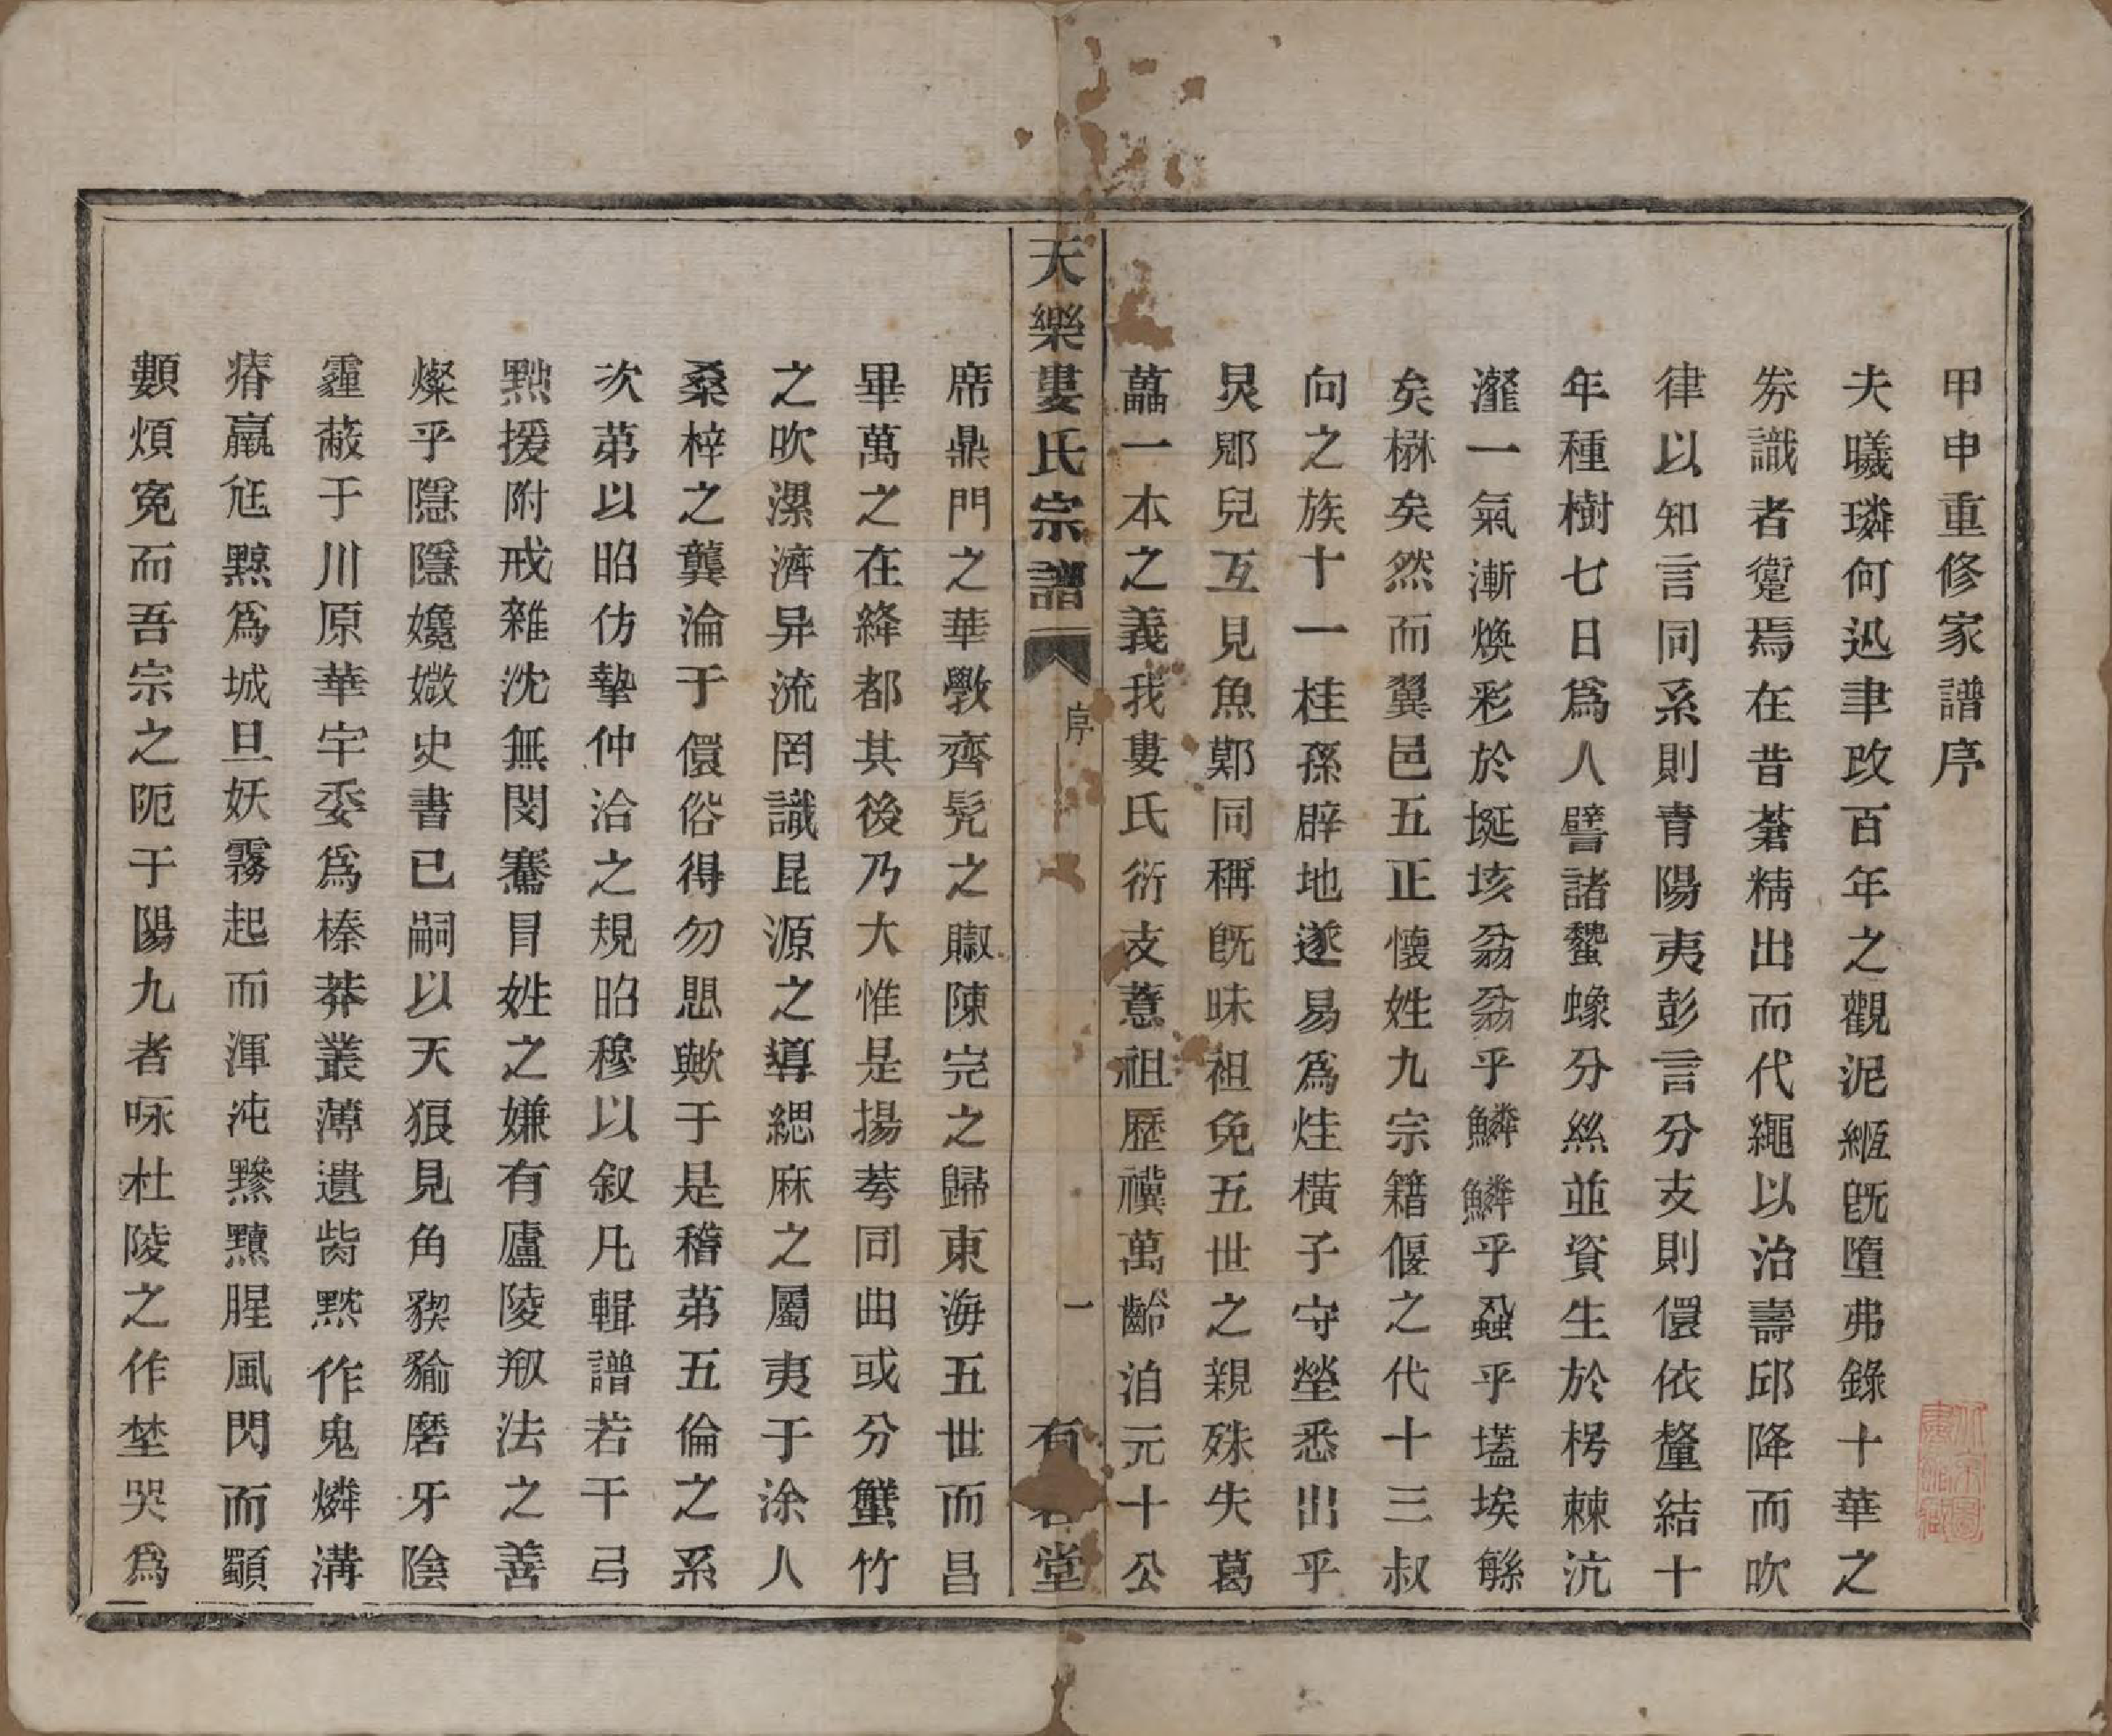 甲申重修家譜序
夫曦璘何迅聿改百年之觀泥緪旣墮弗錄十華之
券識者躗焉在昔蒼精出而代繩以治壽邱降而吹
律以知言同系則青陽夷彭言分支則儇依釐結十
年種樹七日爲人譬諸蠶蟓分絲並資生於楞棘沆
瀣一氣漸煥彩於埏垓翁翁乎鱗鱗乎蝨乎壒埃緜
矣楙矣然而翼邑五正懷姓九宗籍偃之代十三叔
向之族十一桂孫辟地遂易爲炷橫子守塋悉出乎
炅郳兒互見魚鄭同稱旣昧祖免五世之親殊失葛
藟一本之義我婁氏衍支薏祖歷禩萬齡洎元十公
天樂婁氏宗譜
序
一
有堂
席鼎門之華斆齊髡之賕陳完之歸東海五世而昌
畢萬之在絳都其後乃大惟是揚蓩同曲或分蟹竹
之吹漯濟异流罔識昆源之導緦麻之屬夷于涂人
桑梓之龔淪于儇俗得勿思歟于是稽第五倫之系
次第以昭仿摯仲洽之規昭穆以叙凡輯譜若干弓
點援附戒雜沈無閔騫冒姓之嫌有廬陵剏法之善
燦乎隱隱孅媺史書已嗣以天狼見角猰㺄磨牙陰
霾蔽于川原華宇委爲榛莽叢薄遺胔黙作鬼燐溝
瘠羸尪黥爲城旦妖霧起而渾沌黲黷腥風閃而顓
顡煩寃而吾宗之阨于陽九者咏杜陵之作埜哭爲